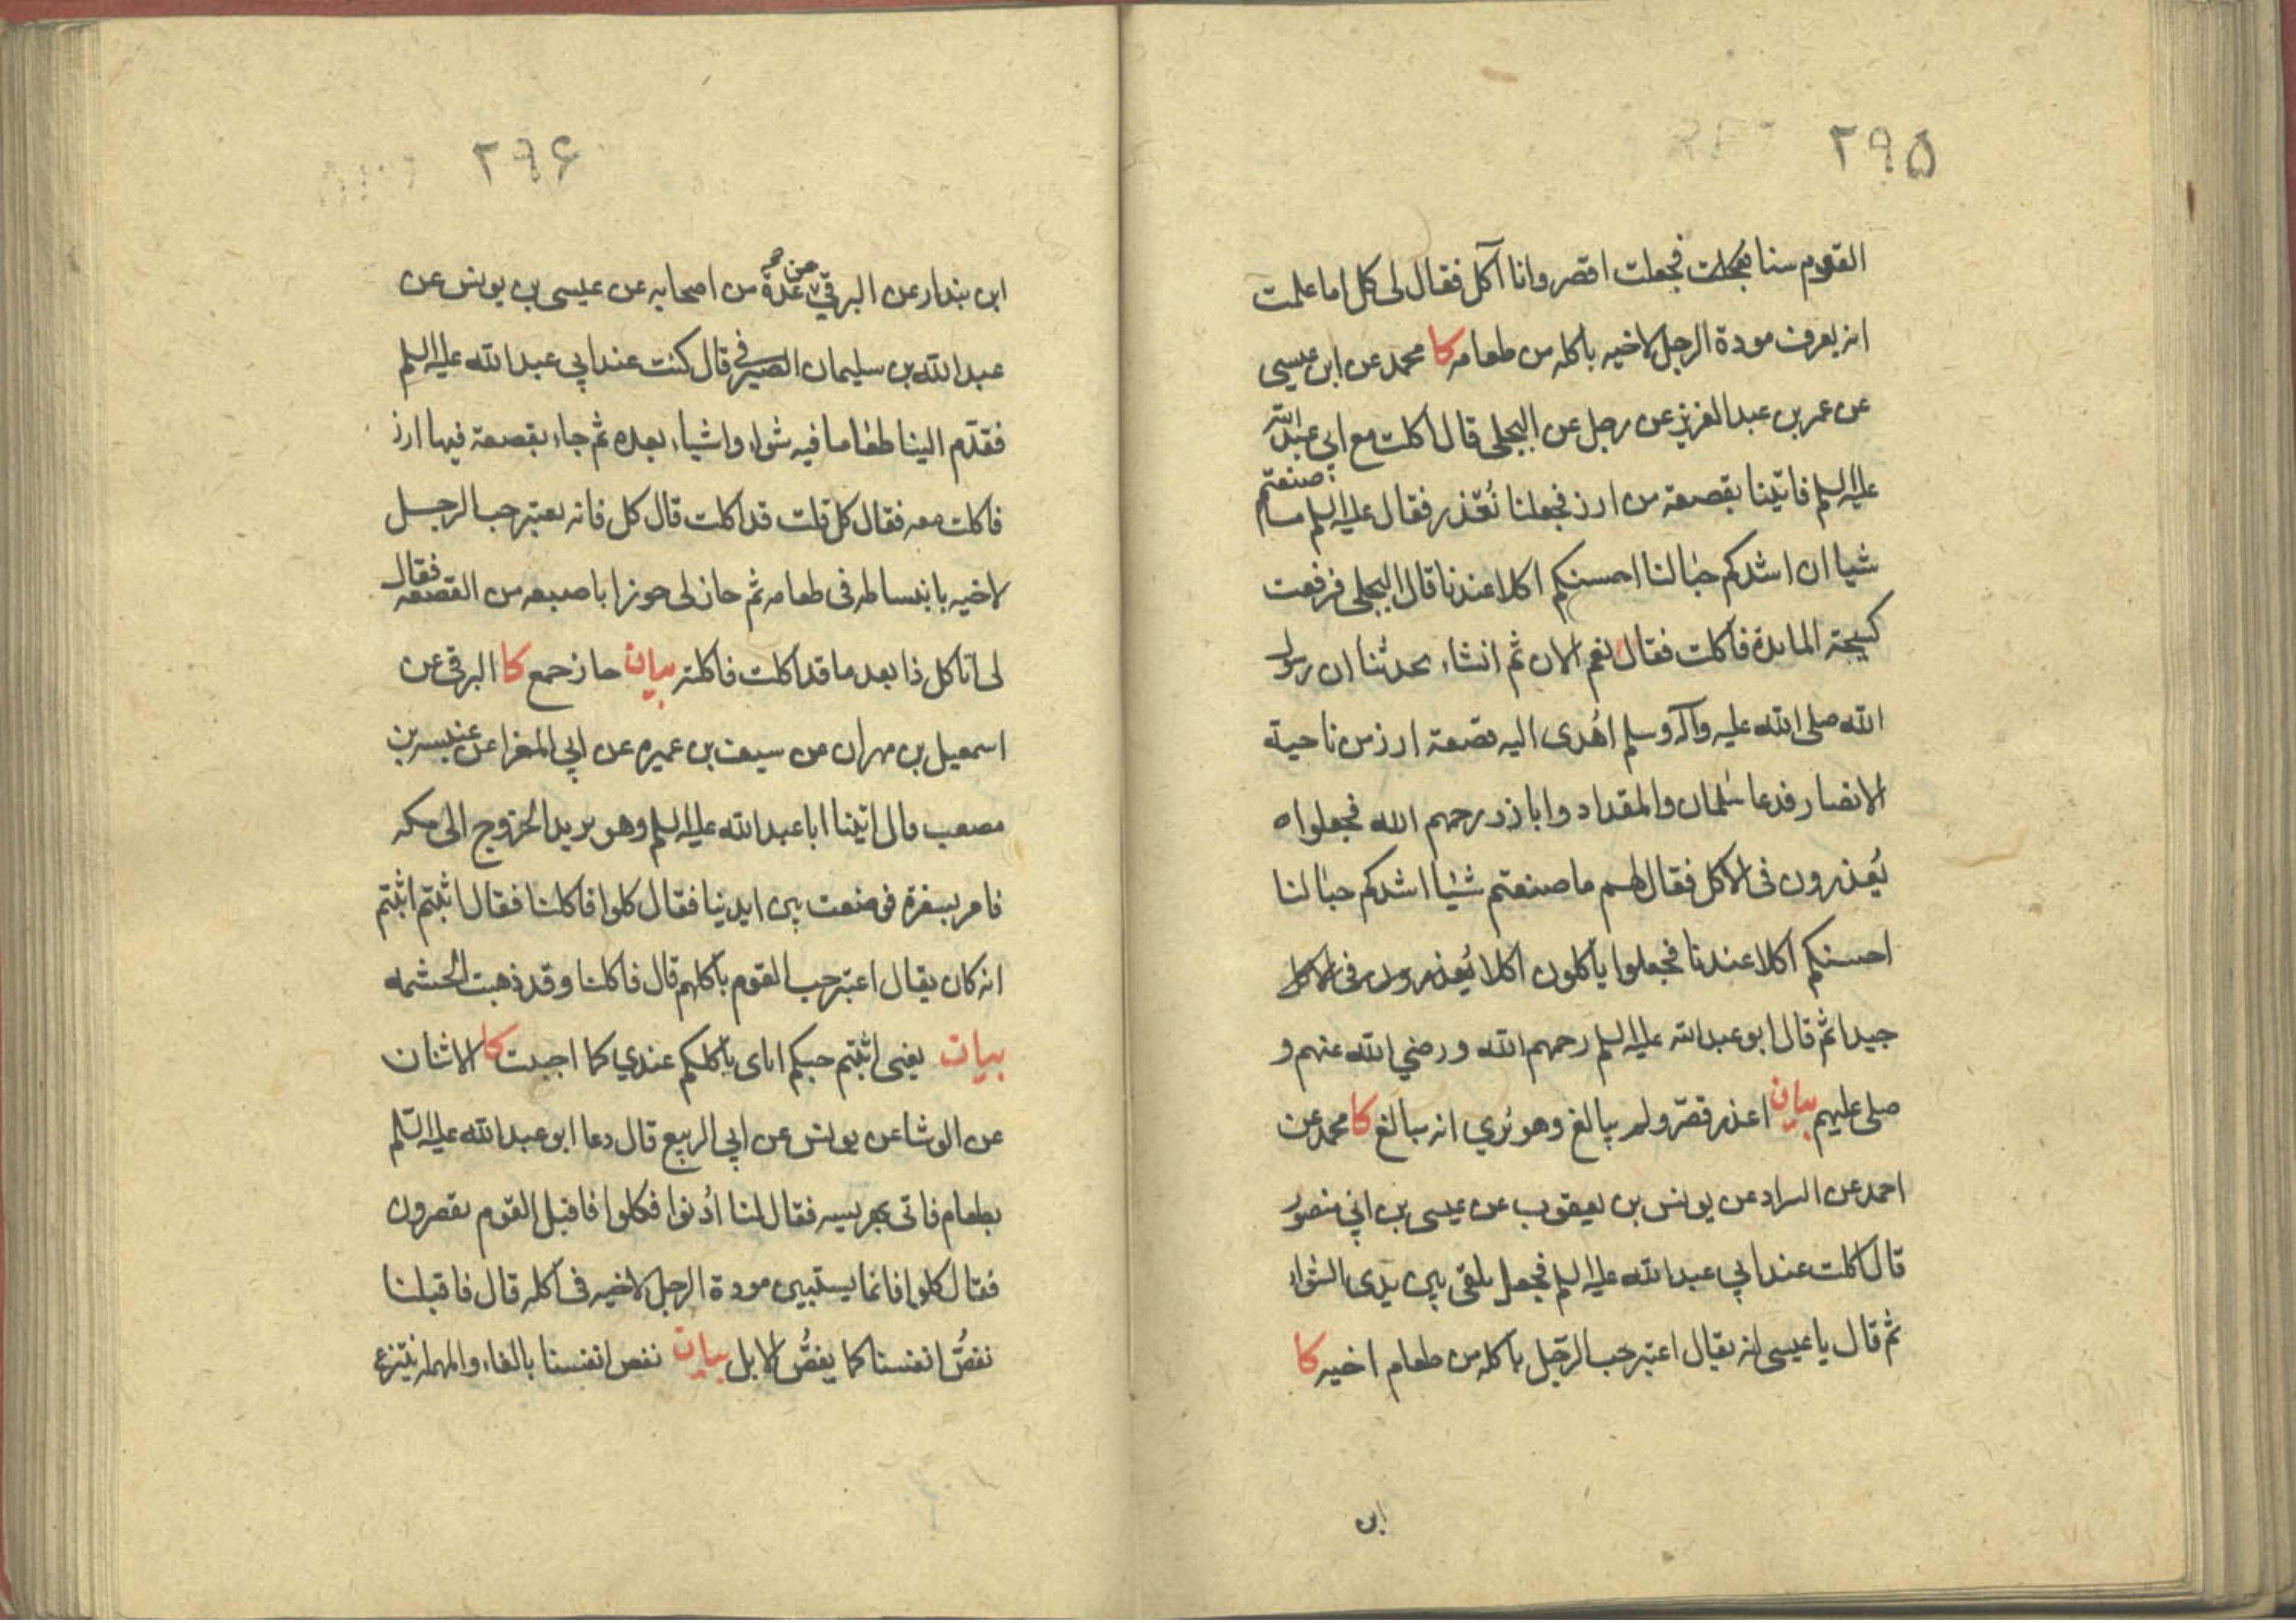 ۲۹۵
القوم سنا فجعلت اقصر وانا آكل فقال لى كل اما علمت
انه يعرف مودة الرجل لاخيه باكله من طعامه كا محمد عن ابن عيسى
عن عمر بن عبد العزيز عن رجل عن البجلى قال اكلت مع ابى عبدالله
عليه السلم فاتينا بقصعة من ارز فجعلنا نُعذر فقال عليه السلم ما صنعتم
شيا ان اشدكم حبا لنا احسنكم اكلا عندنا قال البجلى فرفعت
كسحة المايدة فاكلت فقال نعم الان ثم انشاء يحدثنا ان رسول
الله صلى الله عليه وآله وسلم اهُدى اليه قصعة ارز من ناحية
الانصار فدعا سلمان والمقداد وابا ذر رحمهم الله فجعلوا
يُعذرون فى الاكل فقال لهم ما صنعتم شيئا اشدكم حبا لنا
احسنكم اكلا عندنا فجعلوا ياكلون اكلا
جيدا ثم قال ابو عبدالله عليه السلم رحمهم الله ورضي الله عنهم و
صلى عليهم بيان اعذر قصّر ولم يبالغ وهو يُري انه يبالغ كا محمد عن
احمد عن السراد عن يونس بن يعقوب عن عيسى بن ابي منصور
قال اكلت عند ابي عبدالله عليه السلم فجعل يلقى بين يدى الشواء
ثم قال يا عيسى انه يقال اعتبر حب الرّجل باكله من طعام اخيه كا
ابن
۲۹۶
ابن بندار عن البرقي عن عدة من اصحابه عن عيسى بن يونس عن
عبدالله بن سليمان الصيرفى قال كنت عند ابي عبدالله عليه السلم
فقدّم الينا طعاما فيه شواء واشياء بعده ثم جاء بقصعة فيها ارز
فاكلت معه فقال كل قلت قد اكلت قال كل فانه يعتبر حب الرجل
لاخيه بانبساطه فى طعامه ثم حاز لى حوزا باصبعه من القصعة فقال
لى تاكل ذا بعد ما قد اكلت فاكلته بيان حاز جمع كا البرقى عن
اسمعيل بن مهران عن سيف بن عميره عن ابي المغرا عن عنبسه بن
مصعب قال اتينا ابا عبدالله عليه السلم وهو يريد الخروج الى مكه
فامر بسفرة فوضعت بين ايدينا فقال كلوا فاكلنا فقال اثبتم اثبتم
انه كان يقال اعتبر حب القوم باكلهم قال فاكلنا وقد ذهبت الحشمه
بيان يعنى اثبتم حبكم اياى باكلكم عندي كما احببت كا الاثنان
عن الوشا عن يونس عن ابي الربيع قال دعا ابو عبدالله عليه السّلم
بطعام فاتى بهريسه فقال لنا ادُنوا فكلوا فاقبل القوم يقصرون
فقال كلوا فانما يستبين مودة الرجل لاخيه فى اكله قال فاقبلنا
نغصُّ انفسنا كما يغصُّ الابل بيان نفص انفسنا بالفاء والمهمله ننتزع